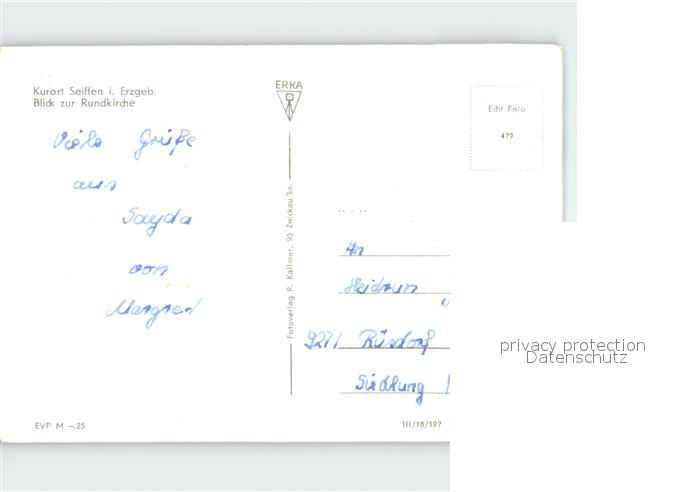 Kurort Seiffen i. Erzgeb.
Blick zur Rundkirche
Viele Grüße
aus
Sayda
von
Margret
ERKA
Fotoverlag R. Kallmer, 95 Zwickau/Sa.
Echt Foto
479
An
Heidrun
9271 Rüsdorf
Siedlung
EVP M –.25
III/18/197
privacy protection
Datenschutz